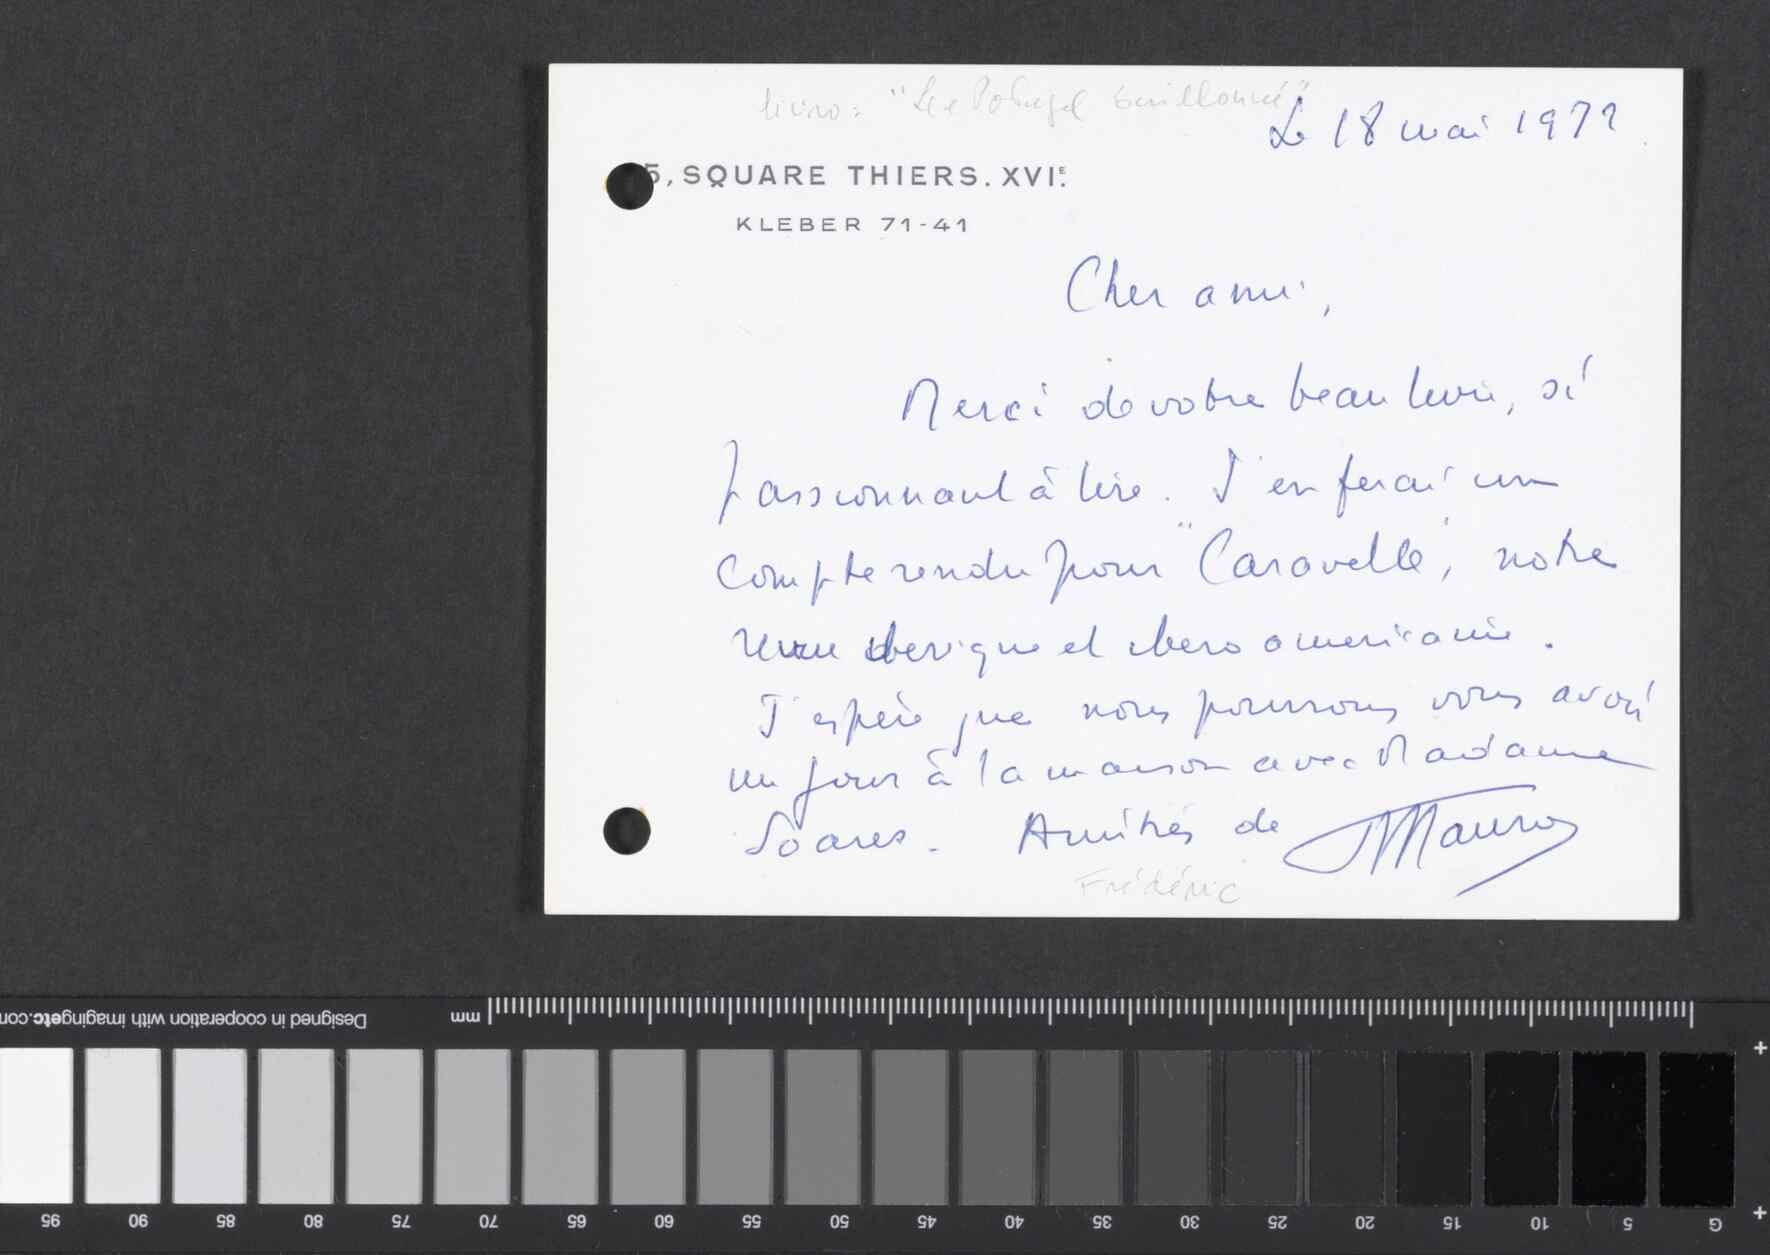 livro: "Le Portugal baillonné"
Le 18 mai 1972
5, SQUARE THIERS. XVIE.
KLEBER 71-41
Cher ami,
Merci de votre beau livre, si
passionnant à lire. J'en ferai un
compte rendu pour "Caravelle", notre
revue iberique et ibero americaine.
J'espère que nous pourrons vous avoir
un jour à la maison avec Madame
Soares. Amitiés de FMauro
Frédéric
Designed in cooperation with imagingetc.com
mm
95 90 85 80 75 70 65 60 55 50 45 40 35 30 25 20 15 10 5 G